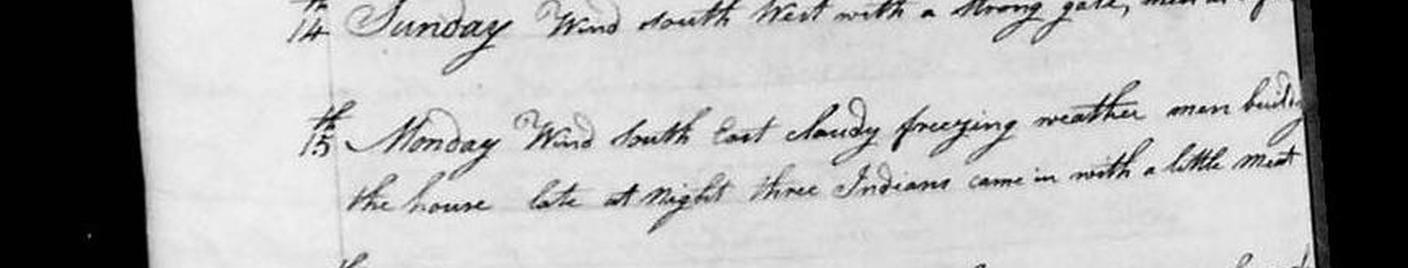 14th Sunday Wind South West with a Strong gale, men at
15th Monday Wind South East cloudy freezing weather men building
the house late at Night three Indians came in with a little meat